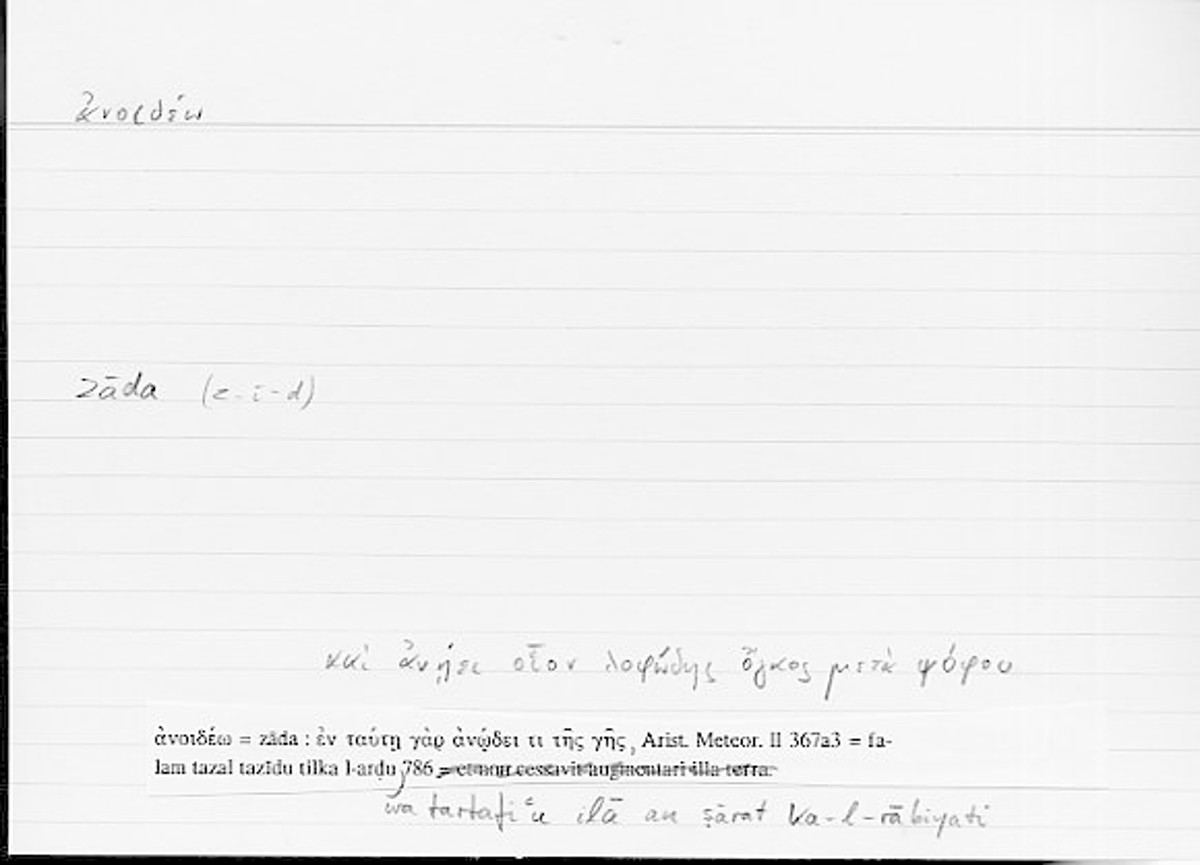 ἀνοιδέω
zāda (z-i-d)
καὶ ἀνῄει οἷον λοφώδης ὄγκος μετὰ ψόφου
ἀνοιδέω = zāda : ἐν ταύτῃ γὰρ ἀνῴδει τι τῆς γῆς, Arist. Meteor. II 367a3 = fa-
lam tazal tazīdu tilka l-arḍu 786 = et non cessavit augmentari illa terra.
wa tartafiʿu ilā an ṣārat ka-l-rābiyati